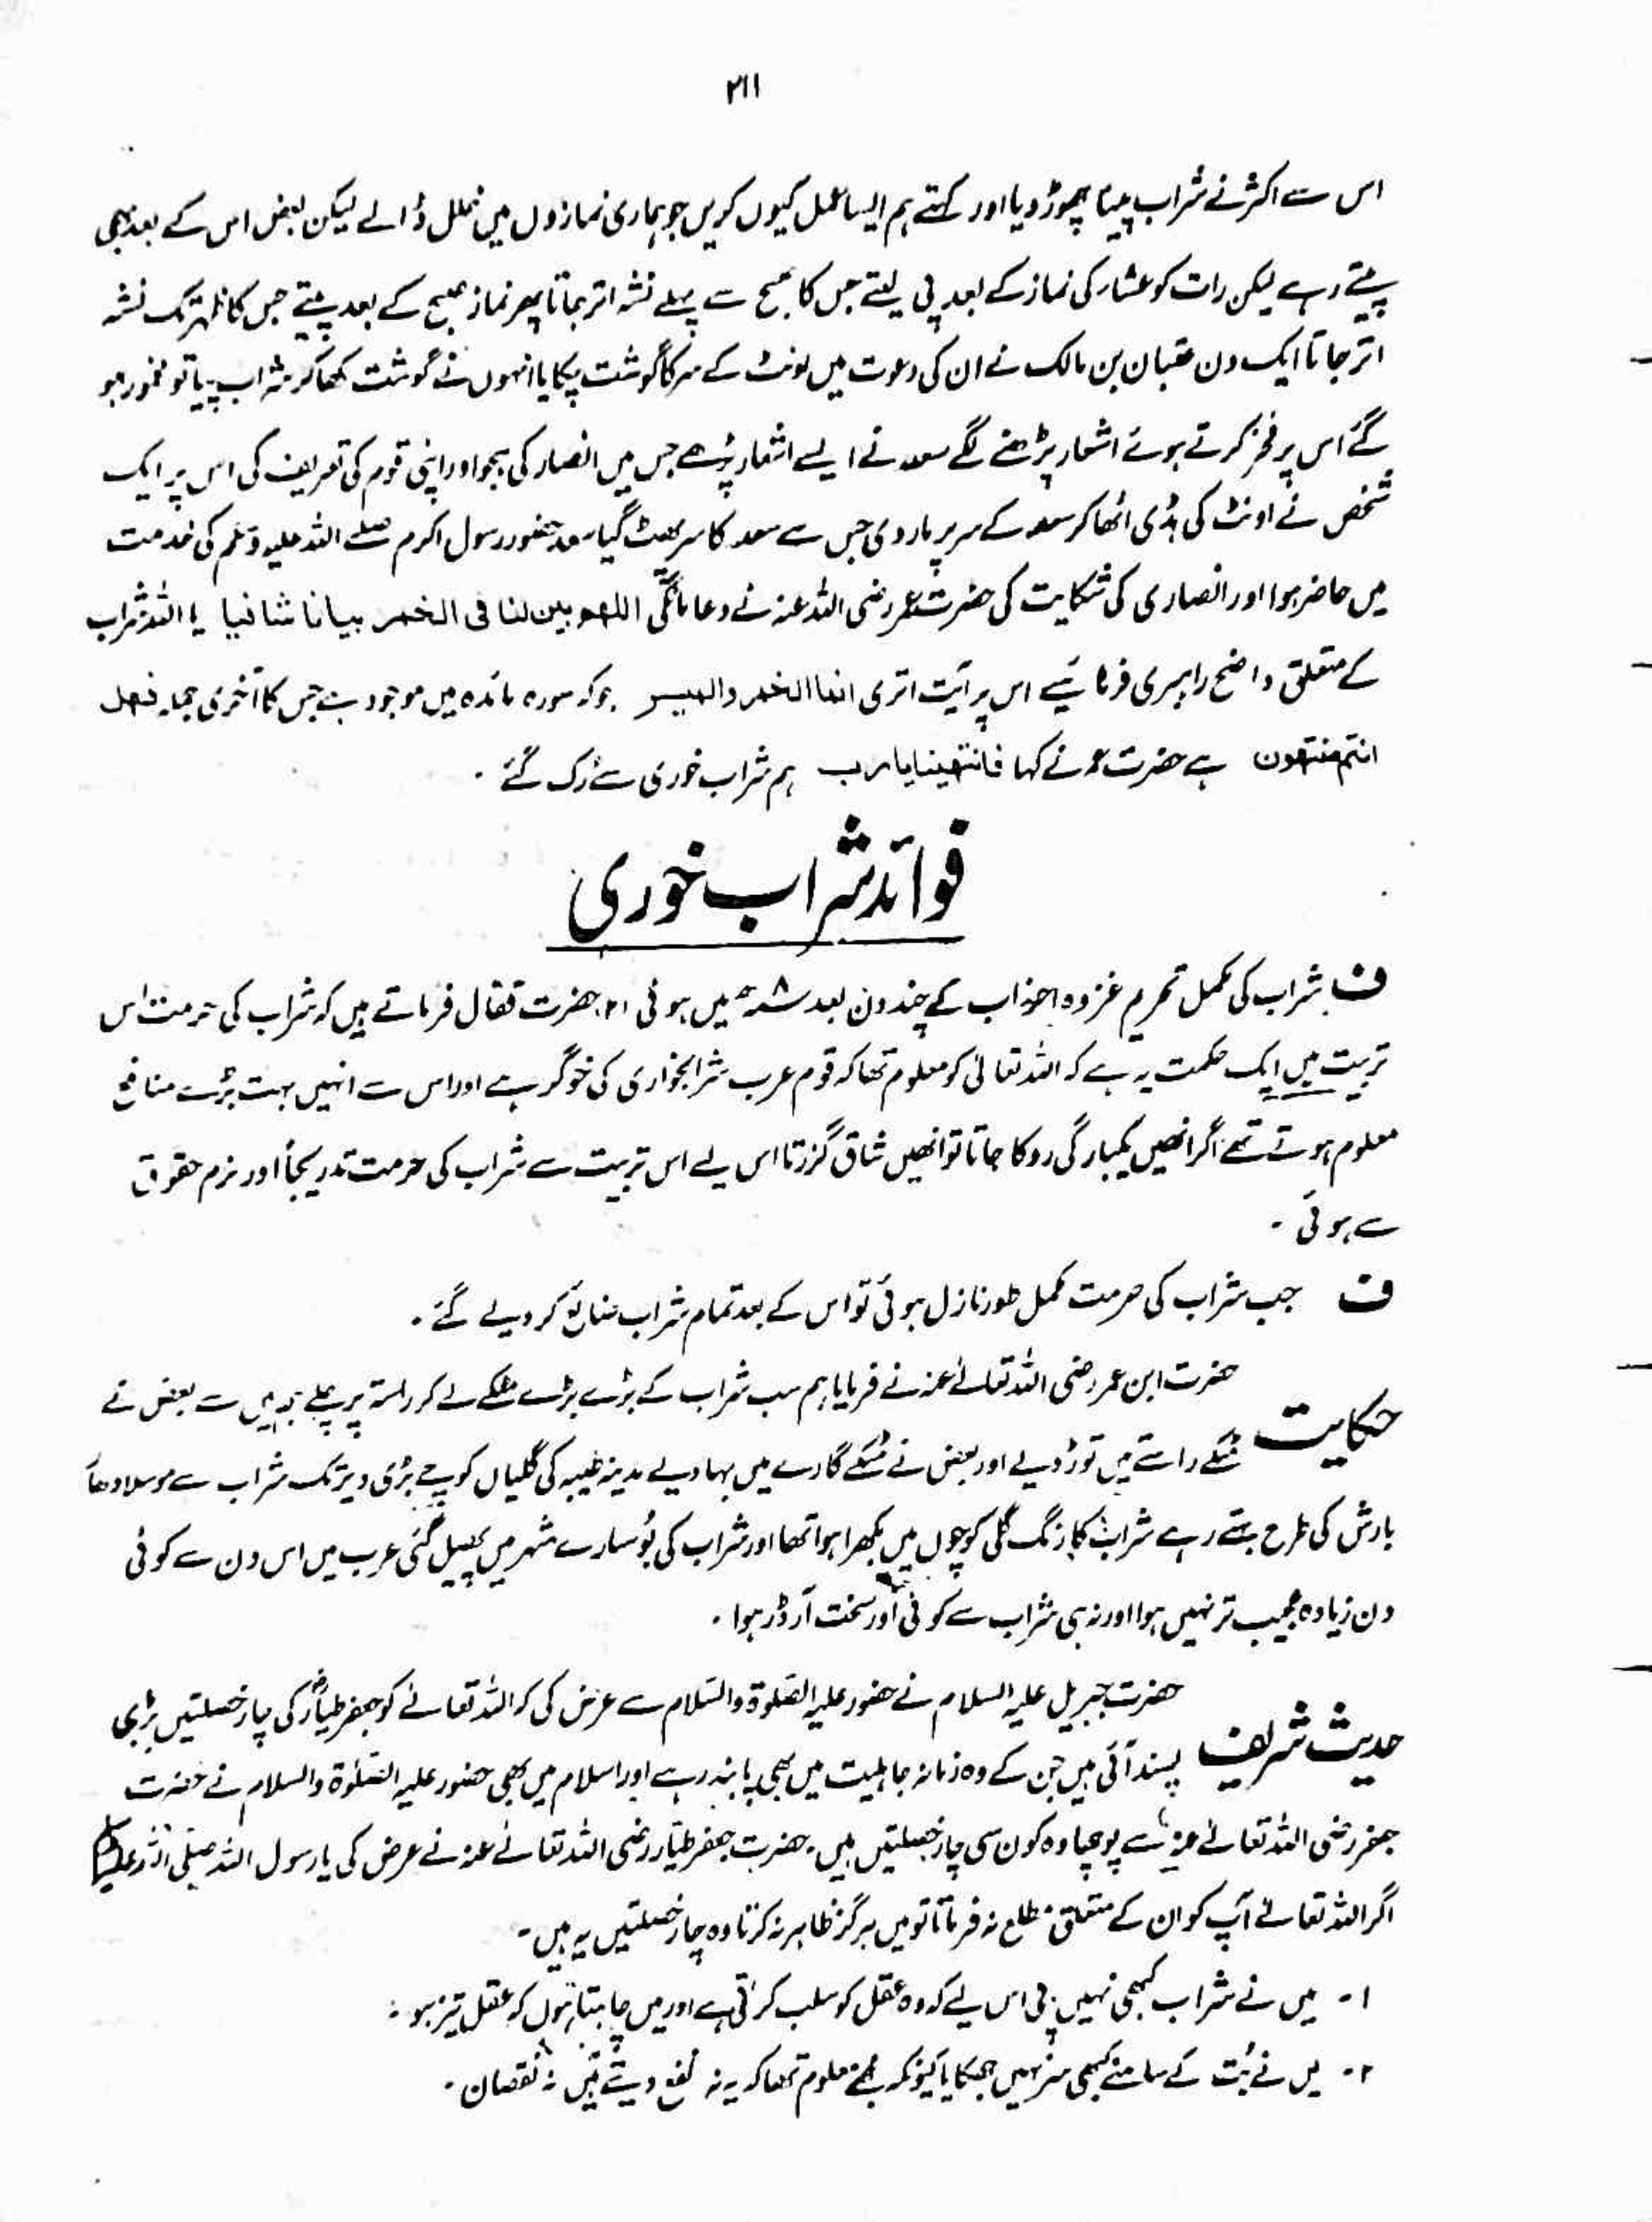 ۲۱۱
اس سے اکثر نے شراب پینا چھوڑ دیا اور کہتے ہم ایسا عمل کیوں کریں جو ہماری نمازوں میں خلل ڈالے لیکن بعض اس کے بعد بھی
پیتے رہے لیکن رات کو عشار کی نماز کے بعد پی لیتے جس کا صبح سے پہلے نشہ اتر جاتا پھر نماز صبح کے بعد پیتے جس کا ظہر تک نشہ
اتر جاتا ایک دن عتبان بن مالک نے ان کی دعوت میں اونٹ کے سر کا گوشت پکایا انہوں نے گوشت کھا کر شراب پیا تو مخمور ہو
گئے اس پر فخر کرتے ہوئے اشعار پڑھنے لگے سعد نے ایسے اشعار پڑھے جس میں انصار کی ہجو اور اپنی قوم کی تعریف کی اس پر ایک
شخص نے اونٹ کی ہڈی اٹھا کر سعد کے سر پر مار دی جس سے سعد کا سر پھٹ گیا سعد حضور رسول اکرم صلے اللہ علیہ وسلم کی خدمت
میں حاضر ہوا اور انصاری کی شکایت کی حضرت عمر رضی اللہ عنہ نے دعا مانگی اللھم بین لنا فی الخمر بیانا شافیا یا اللہ شراب
کے متعلق واضح راہبری فرمائیے اس پر آیت اتری انما الخمر والمیسر جو کہ سورہ مائدہ میں موجود ہے جس کا آخری جملہ فھل
انتم منتھون ہے حضرت عمر نے کہا فانتھینا یا رب ہم شراب خوری سے رک گئے ۔
فوائد شراب خوری
ف شراب کی مکمل تحریم غزوہ احزاب کے چند دن بعد ۸ھ میں ہوئی ۲۱، حضرت قفال فرماتے ہیں کہ شراب کی حرمت اس
تربیت میں ایک حکمت یہ ہے کہ اللہ تعالیٰ کو معلوم تھا کہ قوم عرب شرابخواری کی خوگر ہے اور اس سے انہیں بہت بڑے منافع
معلوم ہوتے تھے اگر انھیں یکبارگی روکا جاتا تو انھیں شاق گزرتا اس لیے اس تربیت سے شراب کی حرمت تدریجاً اور نرم حقوق
سے ہوئی ۔
ف جب شراب کی حرمت مکمل طور نازل ہوئی تو اس کے بعد تمام شراب ضائع کر دیے گئے ۔
حکایت حضرت ابن عمر رضی اللہ تعالےٰ عنہ نے فرمایا ہم سب شراب کے بڑے بڑے مٹکے لے کر راستہ پر چلے ہم میں سے بعض نے
مٹکے راستے میں توڑ دیے اور بعض نے مٹکے گارے میں بہا دیے مدینہ طیبہ کی گلیاں کوچے بڑی دیر تک شراب سے موسلا دھار
بارش کی طرح بہتے رہے شراب کا رنگ گلی کوچوں میں بکھرا ہوا تھا اور شراب کی بُو سارے شہر میں پھیل گئی عرب میں اس دن سے کوئی
دن زیادہ عجیب تر نہیں ہوا اور نہ ہی شراب سے کوئی اور سخت آرڈر ہوا ۔
حدیث شریف حضرت جبریل علیہ السلام نے حضور علیہ الصلوۃ والسلام سے عرض کی کہ اللہ تعالےٰ کو جعفر طیارؓ کی چار خصلتیں بڑی
پسند آئی ہیں جن کے وہ زمانہ جاہلیت میں بھی پابند رہے اور اسلام میں بھی حضور علیہ الصلوۃ والسلام نے حضرت
جعفر رضی اللہ تعالےٰ عنہ سے پوچھا وہ کون سی چار خصلتیں ہیں ۔ حضرت جعفر طیار رضی اللہ تعالےٰ عنہ نے عرض کی یا رسول اللہ صلی اللہ علیہ وسلم
اگر اللہ تعالےٰ آپ کو ان کے متعلق مطلع نہ فرماتا تو میں ہرگز ظاہر نہ کرتا وہ چار خصلتیں یہ ہیں ۔
۱- میں نے شراب کبھی نہیں پی اس لیے کہ وہ عقل کو سلب کرتی ہے اور میں چاہتا ہوں کہ عقل تیز ہو ۔
۲- میں نے بُت کے سامنے کبھی سر نہیں جھکایا کیونکہ مجھے معلوم تھا کہ یہ نہ نفع دیتے ہیں نہ نقصان ۔